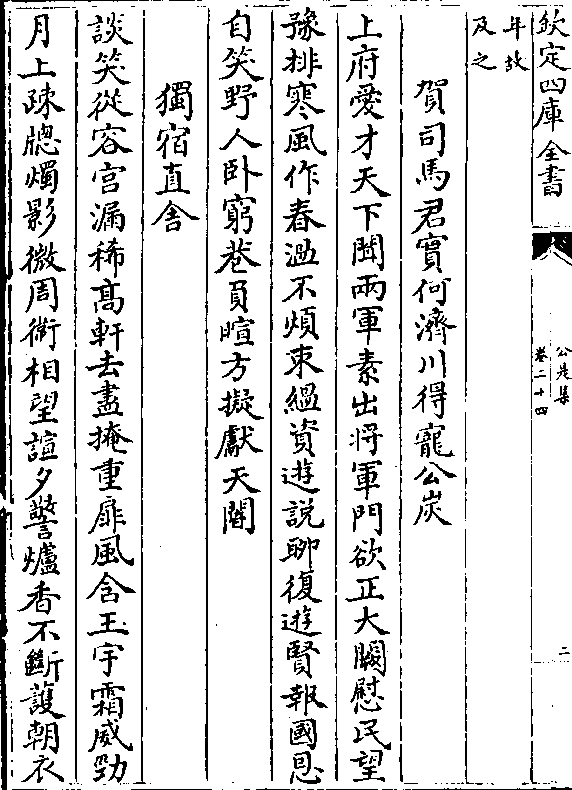 欽定四庫全書
公是集
卷二十四
二
年故
及之
賀司馬君實何濟川得寵公炭
上府愛才天下聞兩軍素出將軍門欲正大闗慰民望
豫排寒風作春溫不煩束緼資遊說聊復遊賢報國恩
自笑野人卧窮巷負暄方擬獻天閽
獨宿直舎
談笑從容宫漏稀髙軒去盡掩重扉風含玉宇霜威勁
月上疎牕燭影微周衛相望諠夕警爐香不斷護朝衣